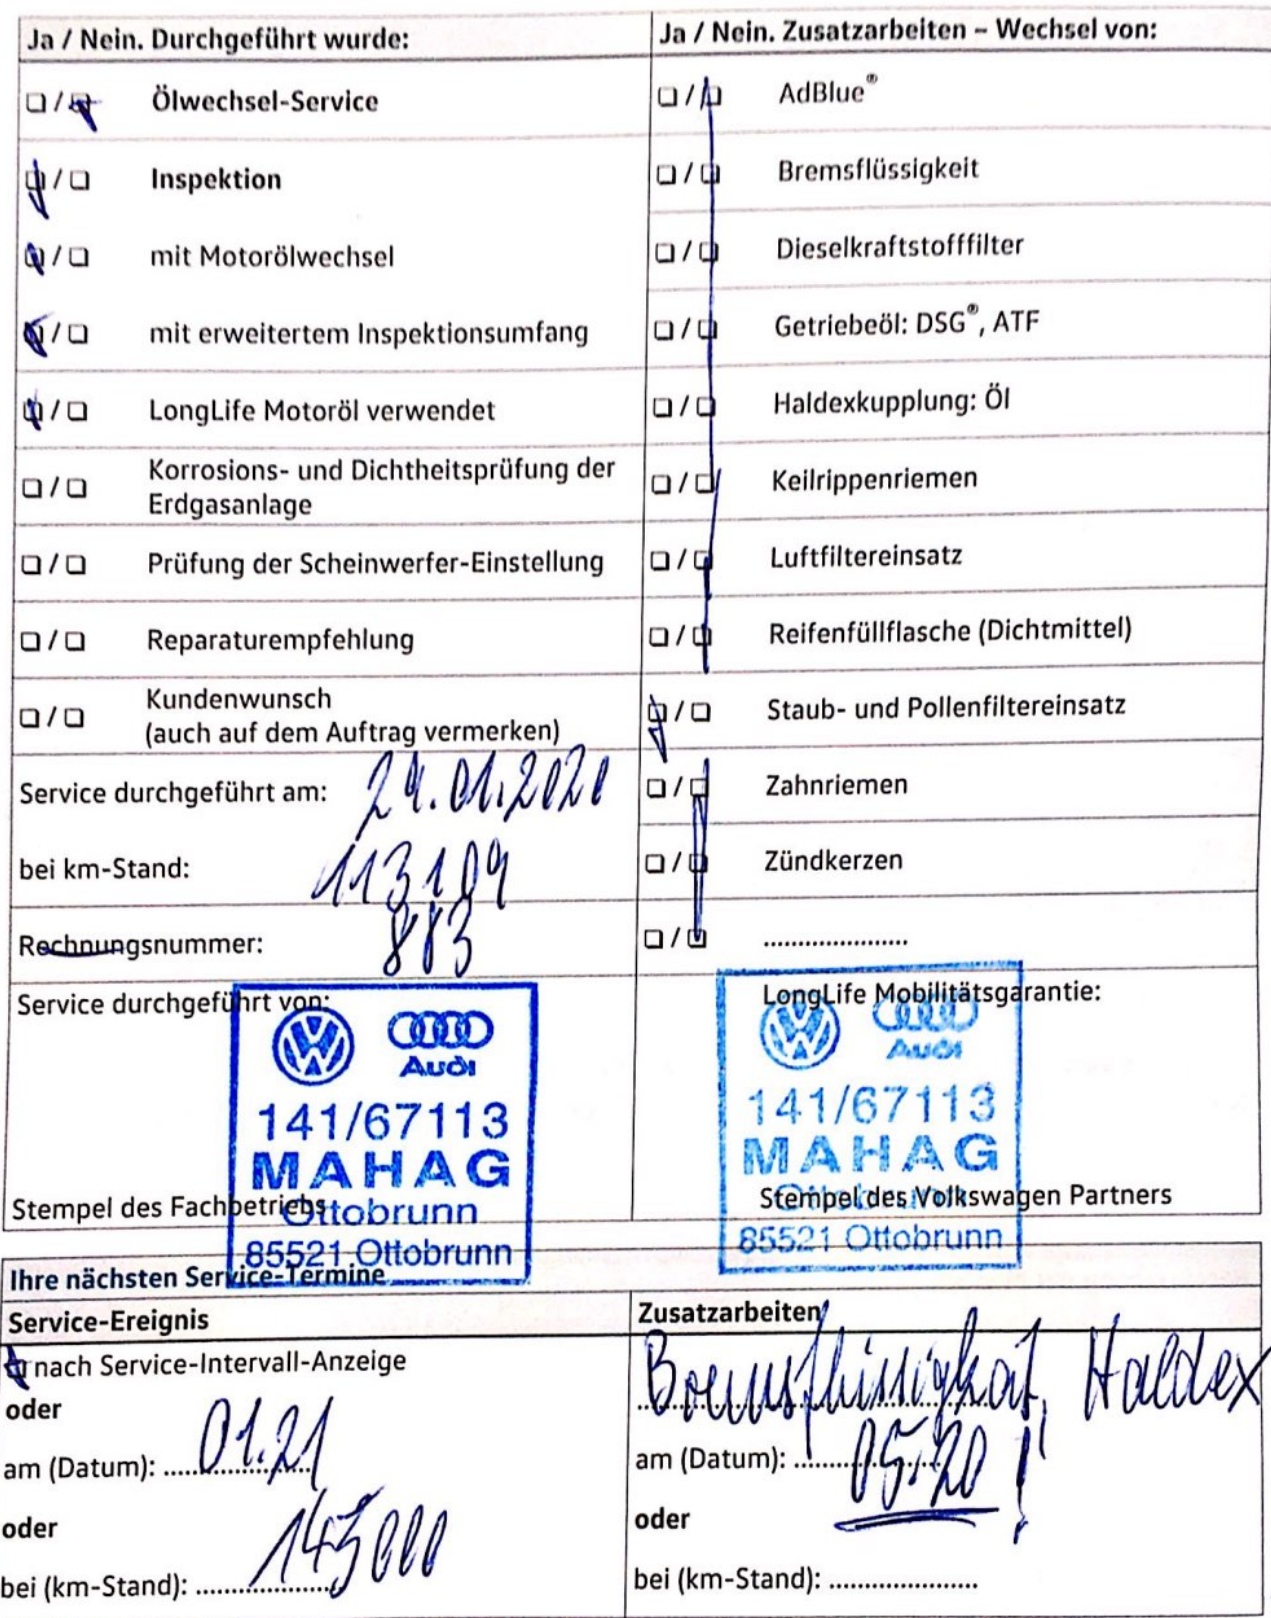 Ja / Nein. Durchgeführt wurde:
Ölwechsel-Service
Inspektion
mit Motorölwechsel
mit erweitertem Inspektionsumfang
LongLife Motoröl verwendet
Korrosions- und Dichtheitsprüfung der
Erdgasanlage
Prüfung der Scheinwerfer-Einstellung
Reparaturempfehlung
Kundenwunsch
(auch auf dem Auftrag vermerken)
Service durchgeführt am: 29.01.2020
bei km-Stand: 113109
Rechnungsnummer: 883
Ja / Nein. Zusatzarbeiten – Wechsel von:
AdBlue®
Bremsflüssigkeit
Dieselkraftstofffilter
Getriebeöl: DSG®, ATF
Haldexkupplung: Öl
Keilrippenriemen
Luftfiltereinsatz
Reifenfüllflasche (Dichtmittel)
Staub- und Pollenfiltereinsatz
Zahnriemen
Zündkerzen
.....................
Service durchgeführt von:
Audi
141/67113
MAHAG
Ottobrunn
85521 Ottobrunn
Stempel des Fachbetriebs
LongLife Mobilitätsgarantie:
Audi
141/67113
MAHAG
Ottobrunn
85521 Ottobrunn
Stempel des Volkswagen Partners
Ihre nächsten Service-Termine
Service-Ereignis
nach Service-Intervall-Anzeige
oder
am (Datum): 01.21
oder
bei (km-Stand): 143000
Zusatzarbeiten
Bremsflüssigkeit, Haldex
am (Datum): 05.20 !
oder
bei (km-Stand): .....................